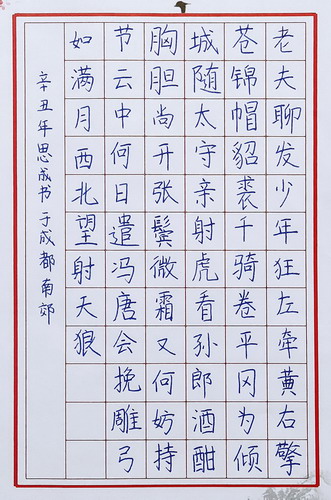 老夫聊发少年狂左牵黄右擎
苍锦帽貂裘千骑卷平冈为倾
城随太守亲射虎看孙郎酒酣
胸胆尚开张鬓微霜又何妨持
节云中何日遣冯唐会挽雕弓
如满月西北望射天狼
辛丑年思成书于成都南郊